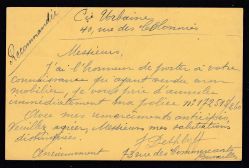 Recommandée
Cie Urbaine
40, rue des Colonnies
Messieurs,
J'ai l'honneur de porter à votre
connaissance qu'ayant vendu mon
mobilier, je vous prie d'annuler
immédiatement ma police No 172507
Avec mes remerciements anticipés,
Veuillez agréer, Messieurs, mes salutations
distinguées.
Anciennement
rue des Commerçants
Bruxelles